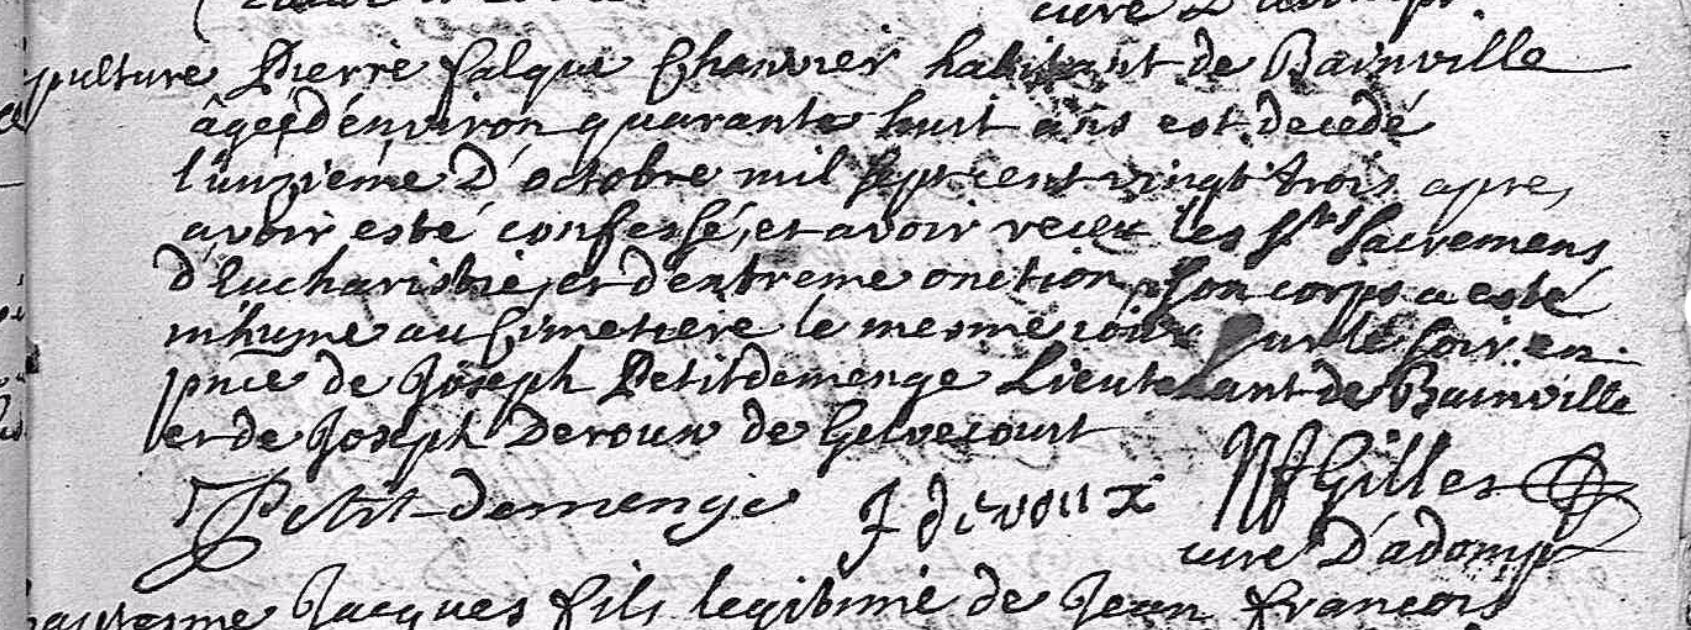 curé D'adomp.
pulture Pierre falque Chanvrier habitant de Bainville
âgé d'environ quarante huit ans est decedé
l'unzieme D'octobre mil sept cent vingt trois apres
avoir esté confessé, et avoir receu les Sts Sacremens
d'Eucharistie, et d'extreme onction, Son corps a esté
inhumé au Cimetiere le mesme jour sur le soir en
pnce de Joseph Petitdemenge Lieutenant de Bainville
et de Joseph Deroux de Gelvecourt
J Petit-demenge J deroux Nf Gilles
curé D'adomp
Jacques fils legitime de Jean François